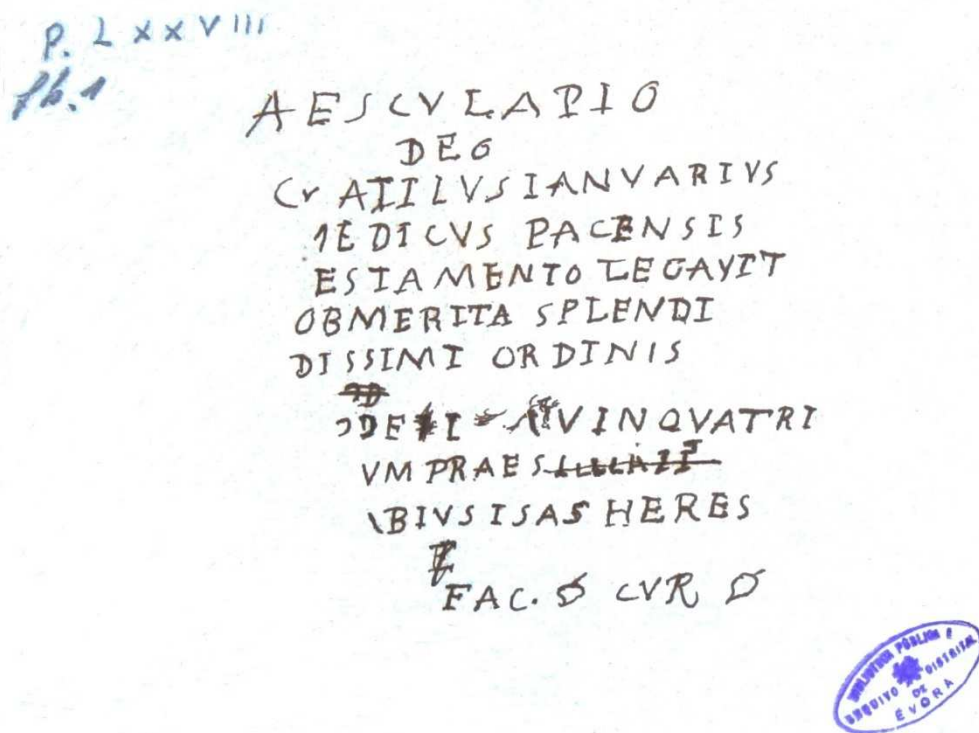 P. LXXVIII
fb.1
AESCVLAPIO
DEO
Cv ATILVSIANVARIVS
1EDICVS PACENSIS
ESTAMENTO LEGAVIT
OBMERITA SPLENDI
DISSIMI ORDINIS
VINQVATRI
VM PRAES
\BIVSISAS HERES
FAC. Ꞩ CVR Ø
BIBLIOTECA PÚBLICA E
ARQUIVO DISTRITAL
DE
ÉVORA